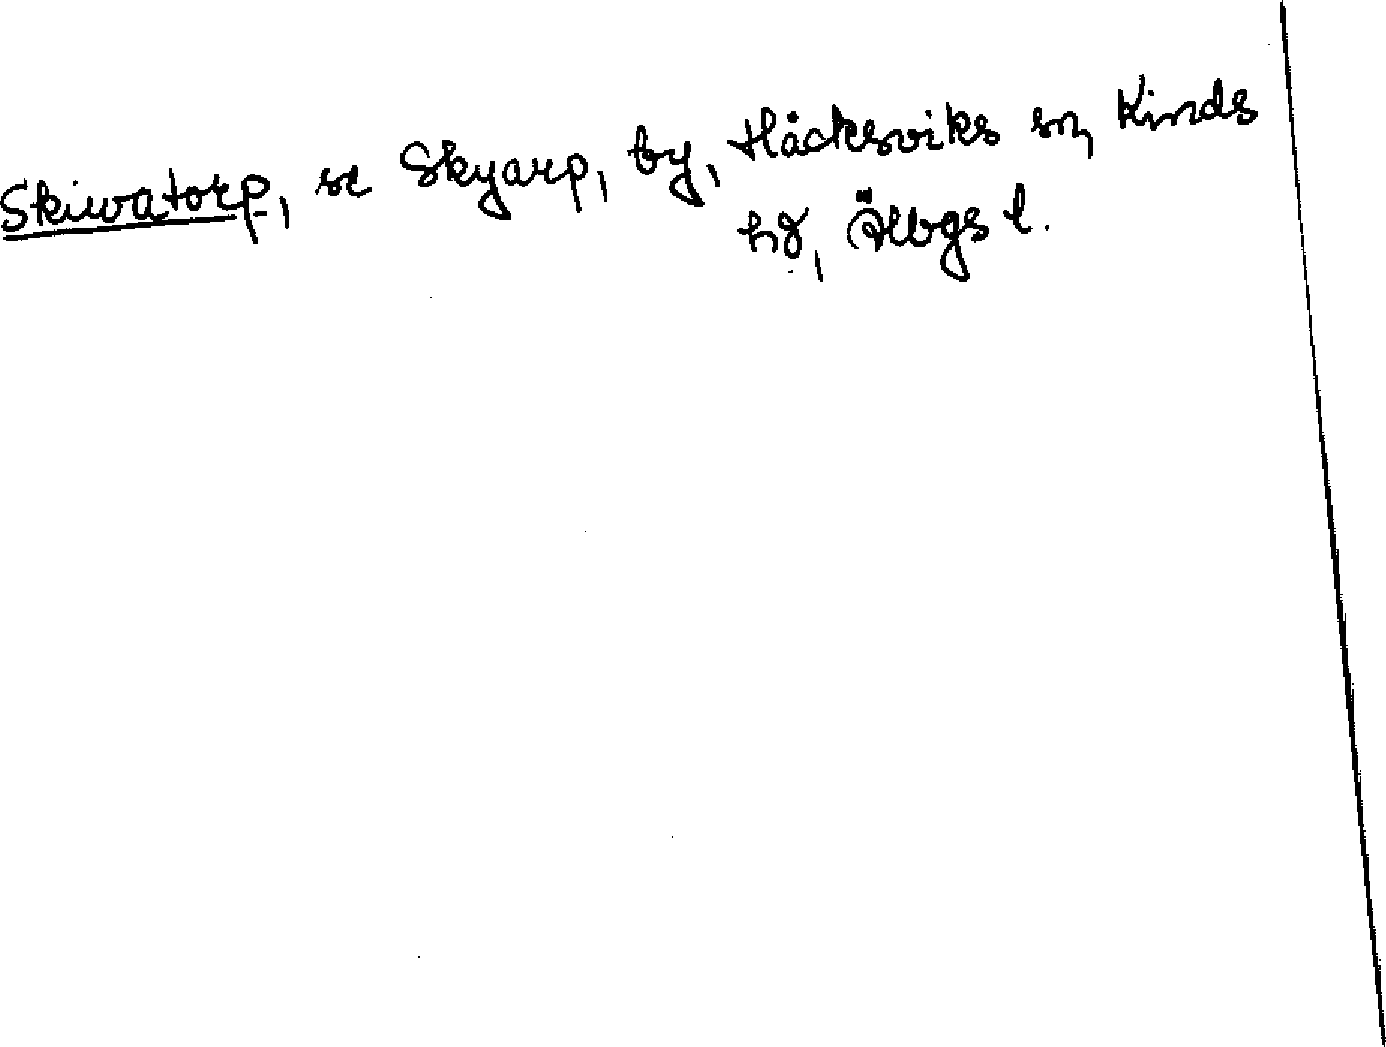 Skiwatorp, se Skyarp, by, Håcksviks sn, Kinds
hd, Älvbgs l.